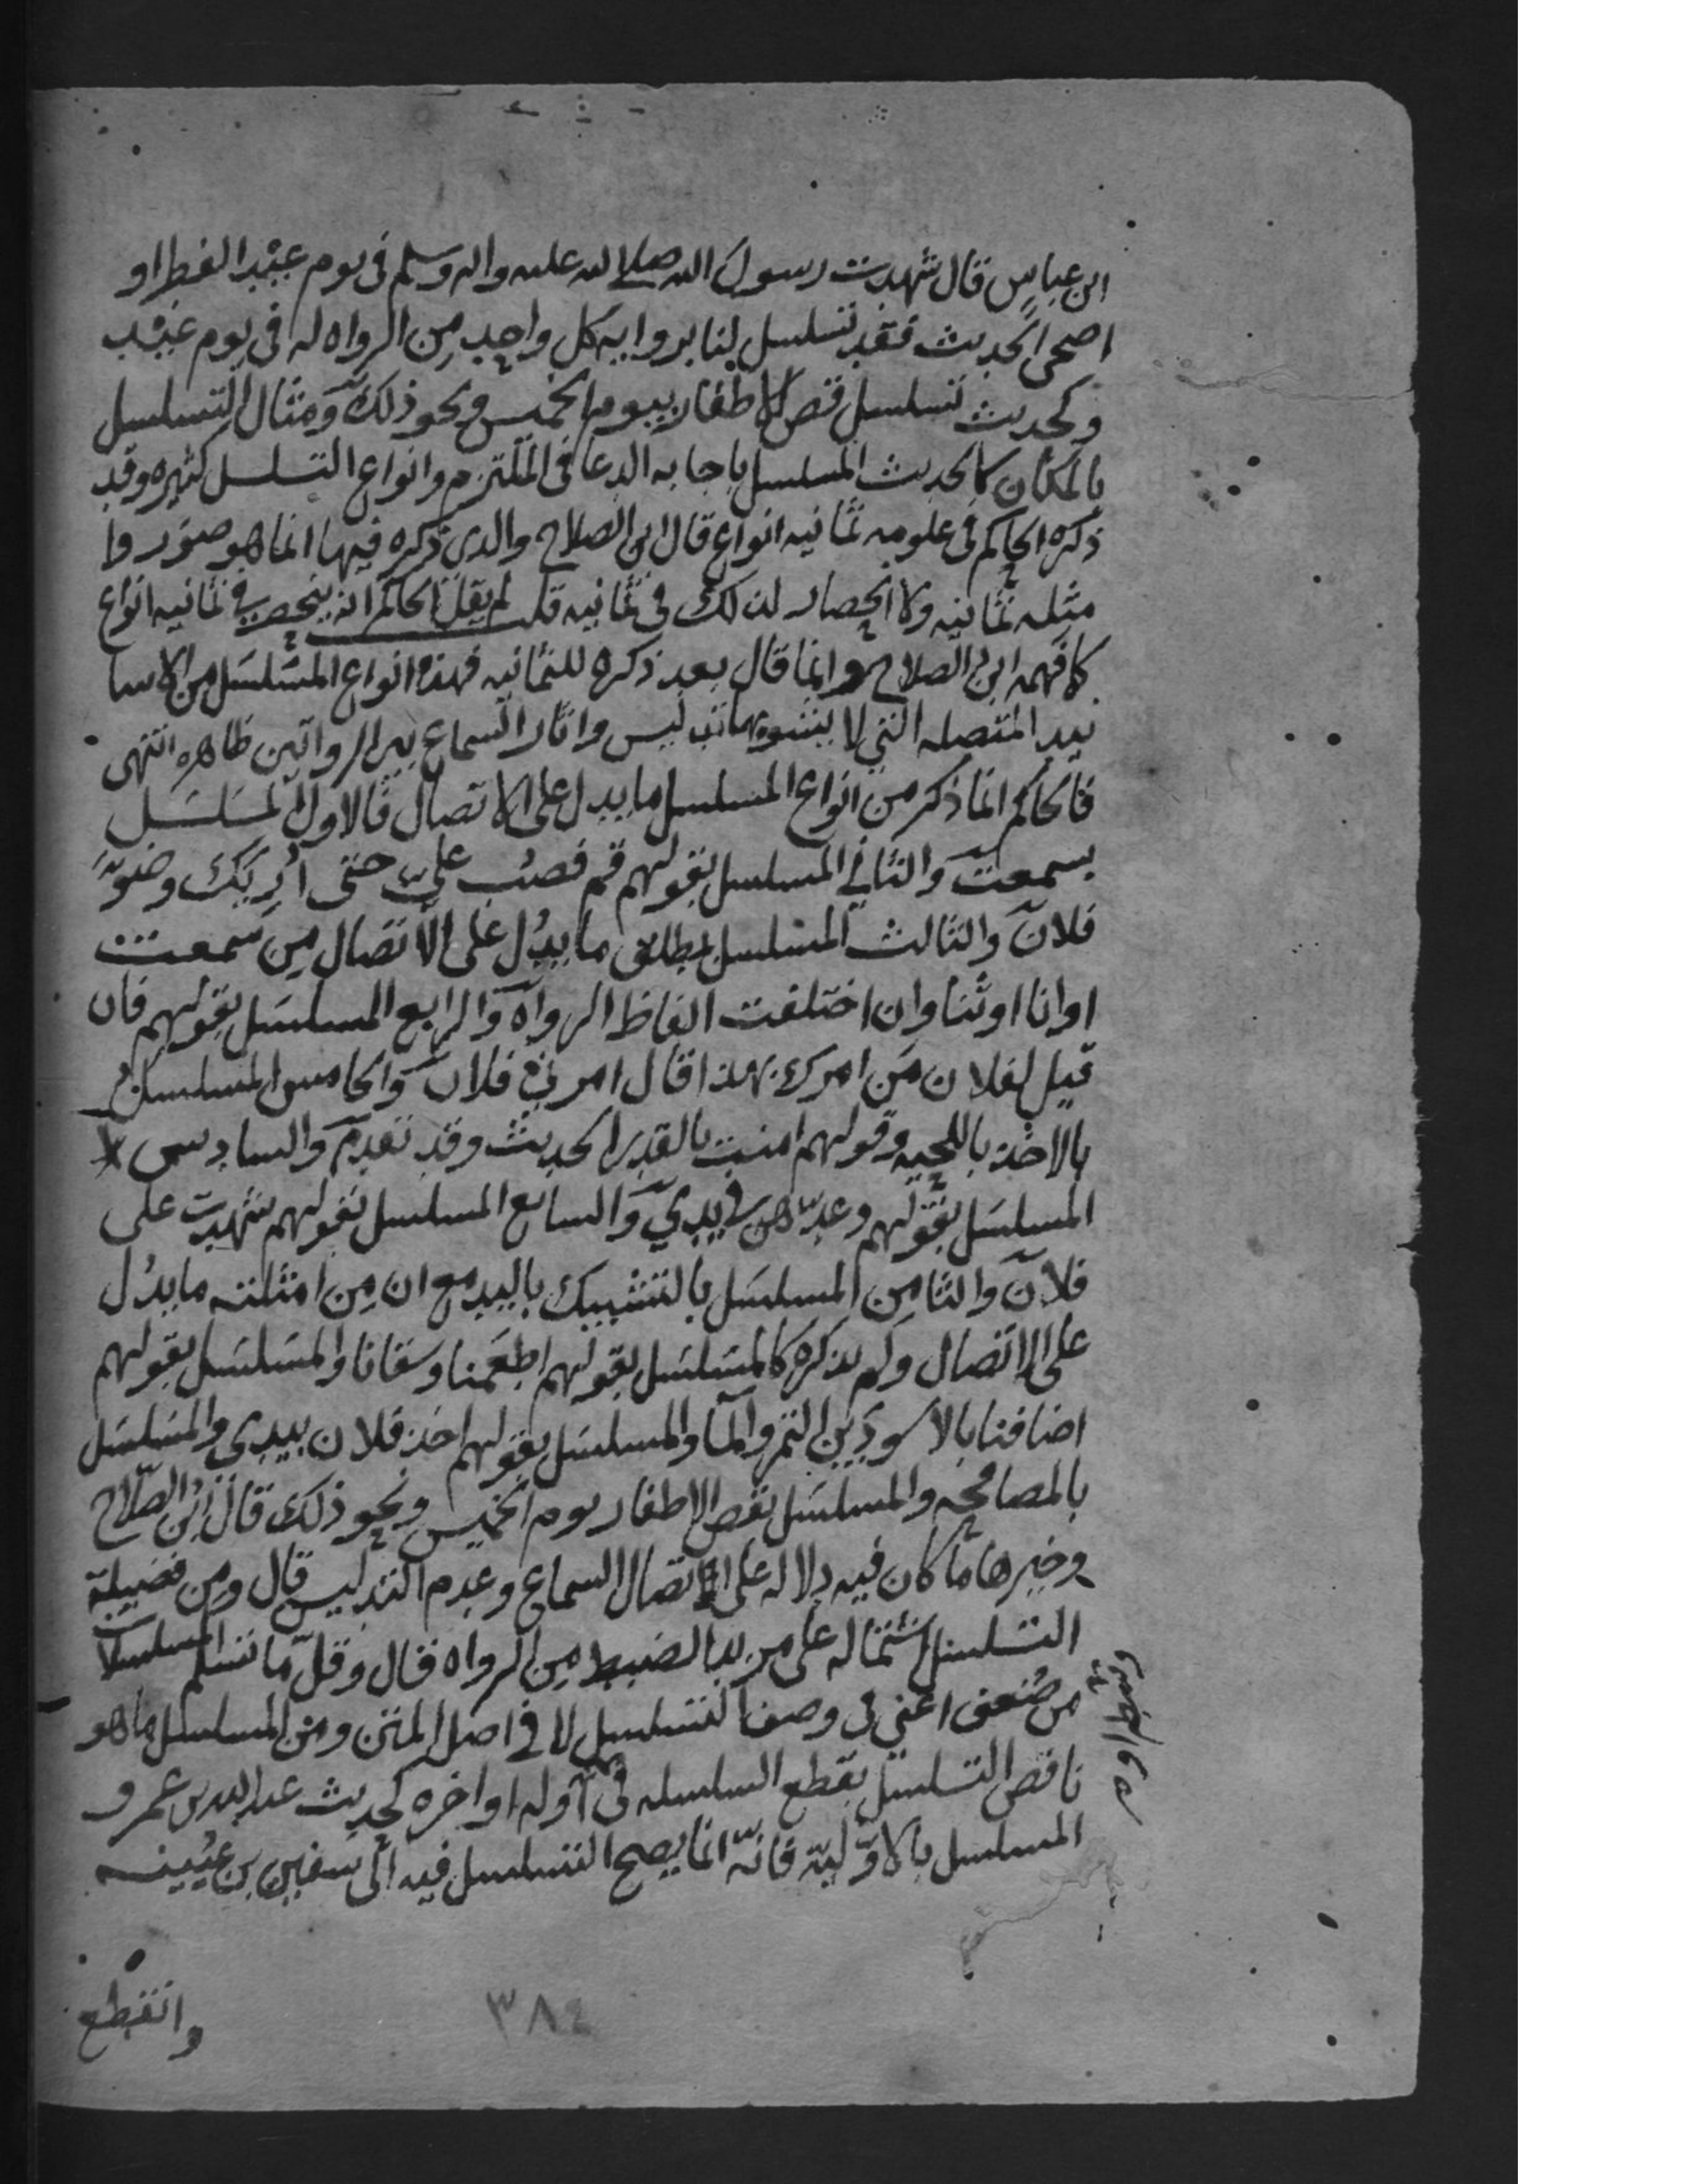 ابن عباس قال شهدت رسول الله صلى الله عليه واله وسلم فى يوم عيد الفطر او
اضحى الحديث فقد تسلسل لنا بروايه كل واحد من الرواه له فى يوم عيد
وكحديث تسلسل قص الاظفار بيوم الخميس ونحو ذلك ومثال التسلسل
بالمكان كالحديث المسلسل باجابه الدعا فى الملتزم وانواع التسلسل كثيره وقد
ذكره الحاكم فى علومه ثمانيه انواع قال ابن الصلاح والذى ذكره فيها انما هو صور وا
مثله ثمانيه ولا انحصار لذلك فى ثمانيه قلت لم يقل الحاكم انه ينحصر في ثمانيه انواع
كما فهمه ابن الصلاح وانما قال بعد ذكره للثمانيه فهذه انواع المسلسل من الاسا
نيد المتصله التي لا يشوبها تدليس واثار السماع بين الراويين ظاهره انتهى
فالحاكم انما ذكر من انواع المسلسل ما يدل على الاتصال فالاول المسلسل
بسمعت والثاني المسلسل بقولهم قم فصب علي حتى اريك وضوء
فلان والثالث المسلسل بمطلق ما يدل على الاتصال من سمعت
او انا او ثنا وان اختلفت الفاظ الرواه والرابع المسلسل بقولهم فان
قيل لفلان من امرك بهذا قال امرني فلان والخامس المسلسل
بالاخذ باللحيه وقولهم امنت بالقدر الحديث وقد تقدم والسادس
المسلسل بقولهم وعدهن في يدي والسابع المسلسل بقولهم شهدت على
فلان والثامن المسلسل بالتشبيك باليد مع ان من امثلته ما يدل
على الاتصال ولم يذكره كالمسلسل بقولهم اطعمنا وسقانا والمسلسل بقولهم
اضافنا بالاسودين التمر والما والمسلسل بقولهم اخذ فلان بيدى والمسلسل
بالمصافحه والمسلسل بقص الاظفار يوم الخميس ونحو ذلك قال ابن الصلاح
وخيرها ما كان فيه دلاله على اتصال السماع وعدم التدليس قال ومن فضيلة
التسلسل اشتماله على مزيد الضبط من الرواه قال وقل ما تسلم المسلسلات
من ضعف اعني فى وصف التسلسل لا في اصل المتن ومن المسلسل ما هو
ناقص التسلسل بقطع السلسله فى اوله او اخره كحديث عبد الله بن عمرو
المسلسل بالاوليه فانه انما يصح التسلسل فيه الى سفين بن عيينه
وانقطع
٣٨٤